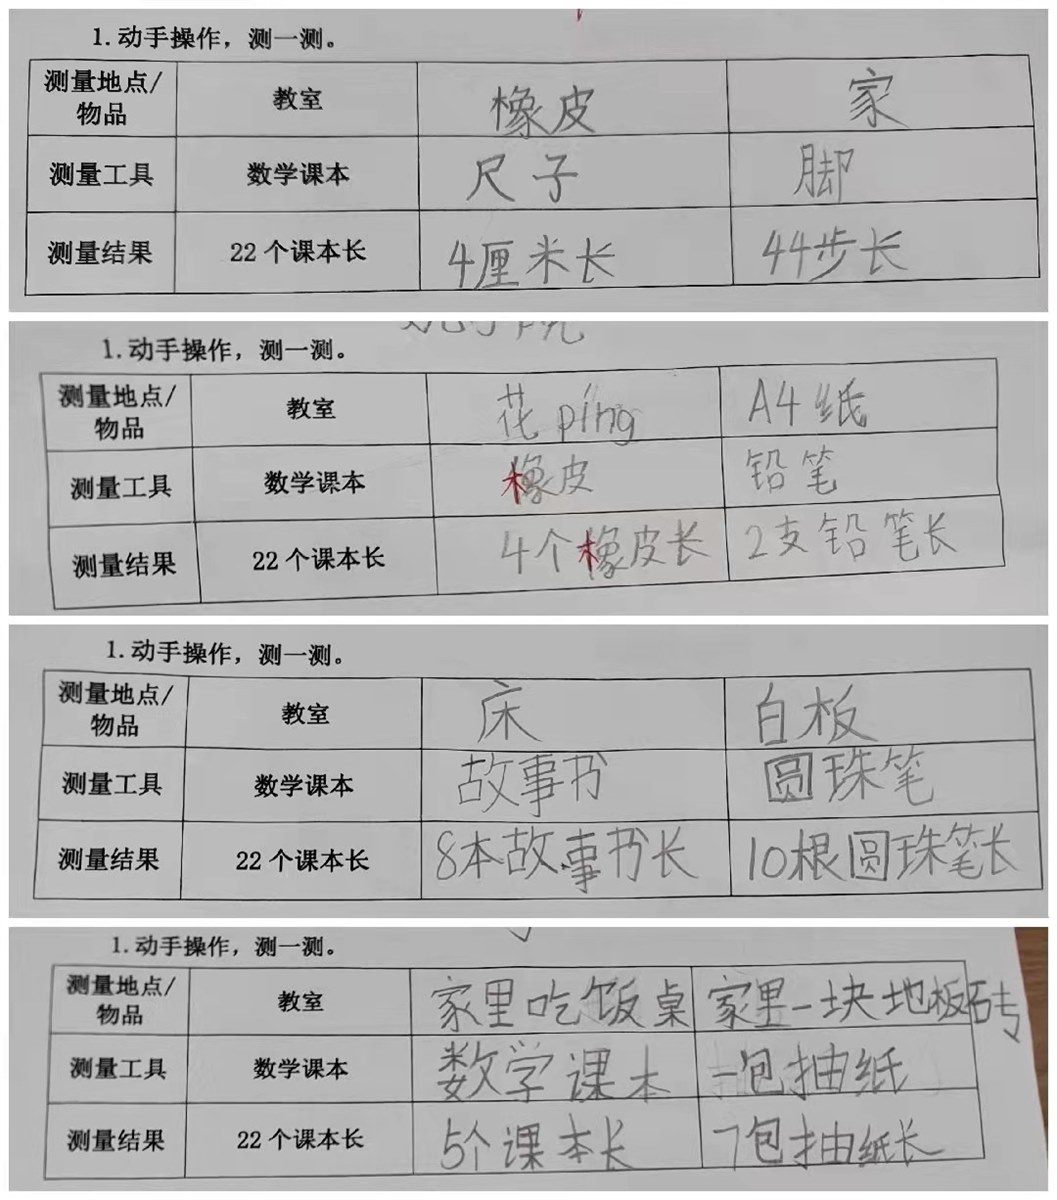 1.动手操作，测一测。
测量地点/物品 教室 橡皮 家
测量工具 数学课本 尺子 脚
测量结果 22个课本长 4厘米长 44步长
1.动手操作，测一测。
测量地点/物品 教室 花píng A4纸
测量工具 数学课本 橡皮 铅笔
测量结果 22个课本长 4个橡皮长 2支铅笔长
1.动手操作，测一测。
测量地点/物品 教室 床 白板
测量工具 数学课本 故事书 圆珠笔
测量结果 22个课本长 8本故事书长 10根圆珠笔长
1.动手操作，测一测。
测量地点/物品 教室 家里吃饭桌 家里一块地板砖
测量工具 数学课本 数学课本 一包抽纸
测量结果 22个课本长 5个课本长 7包抽纸长